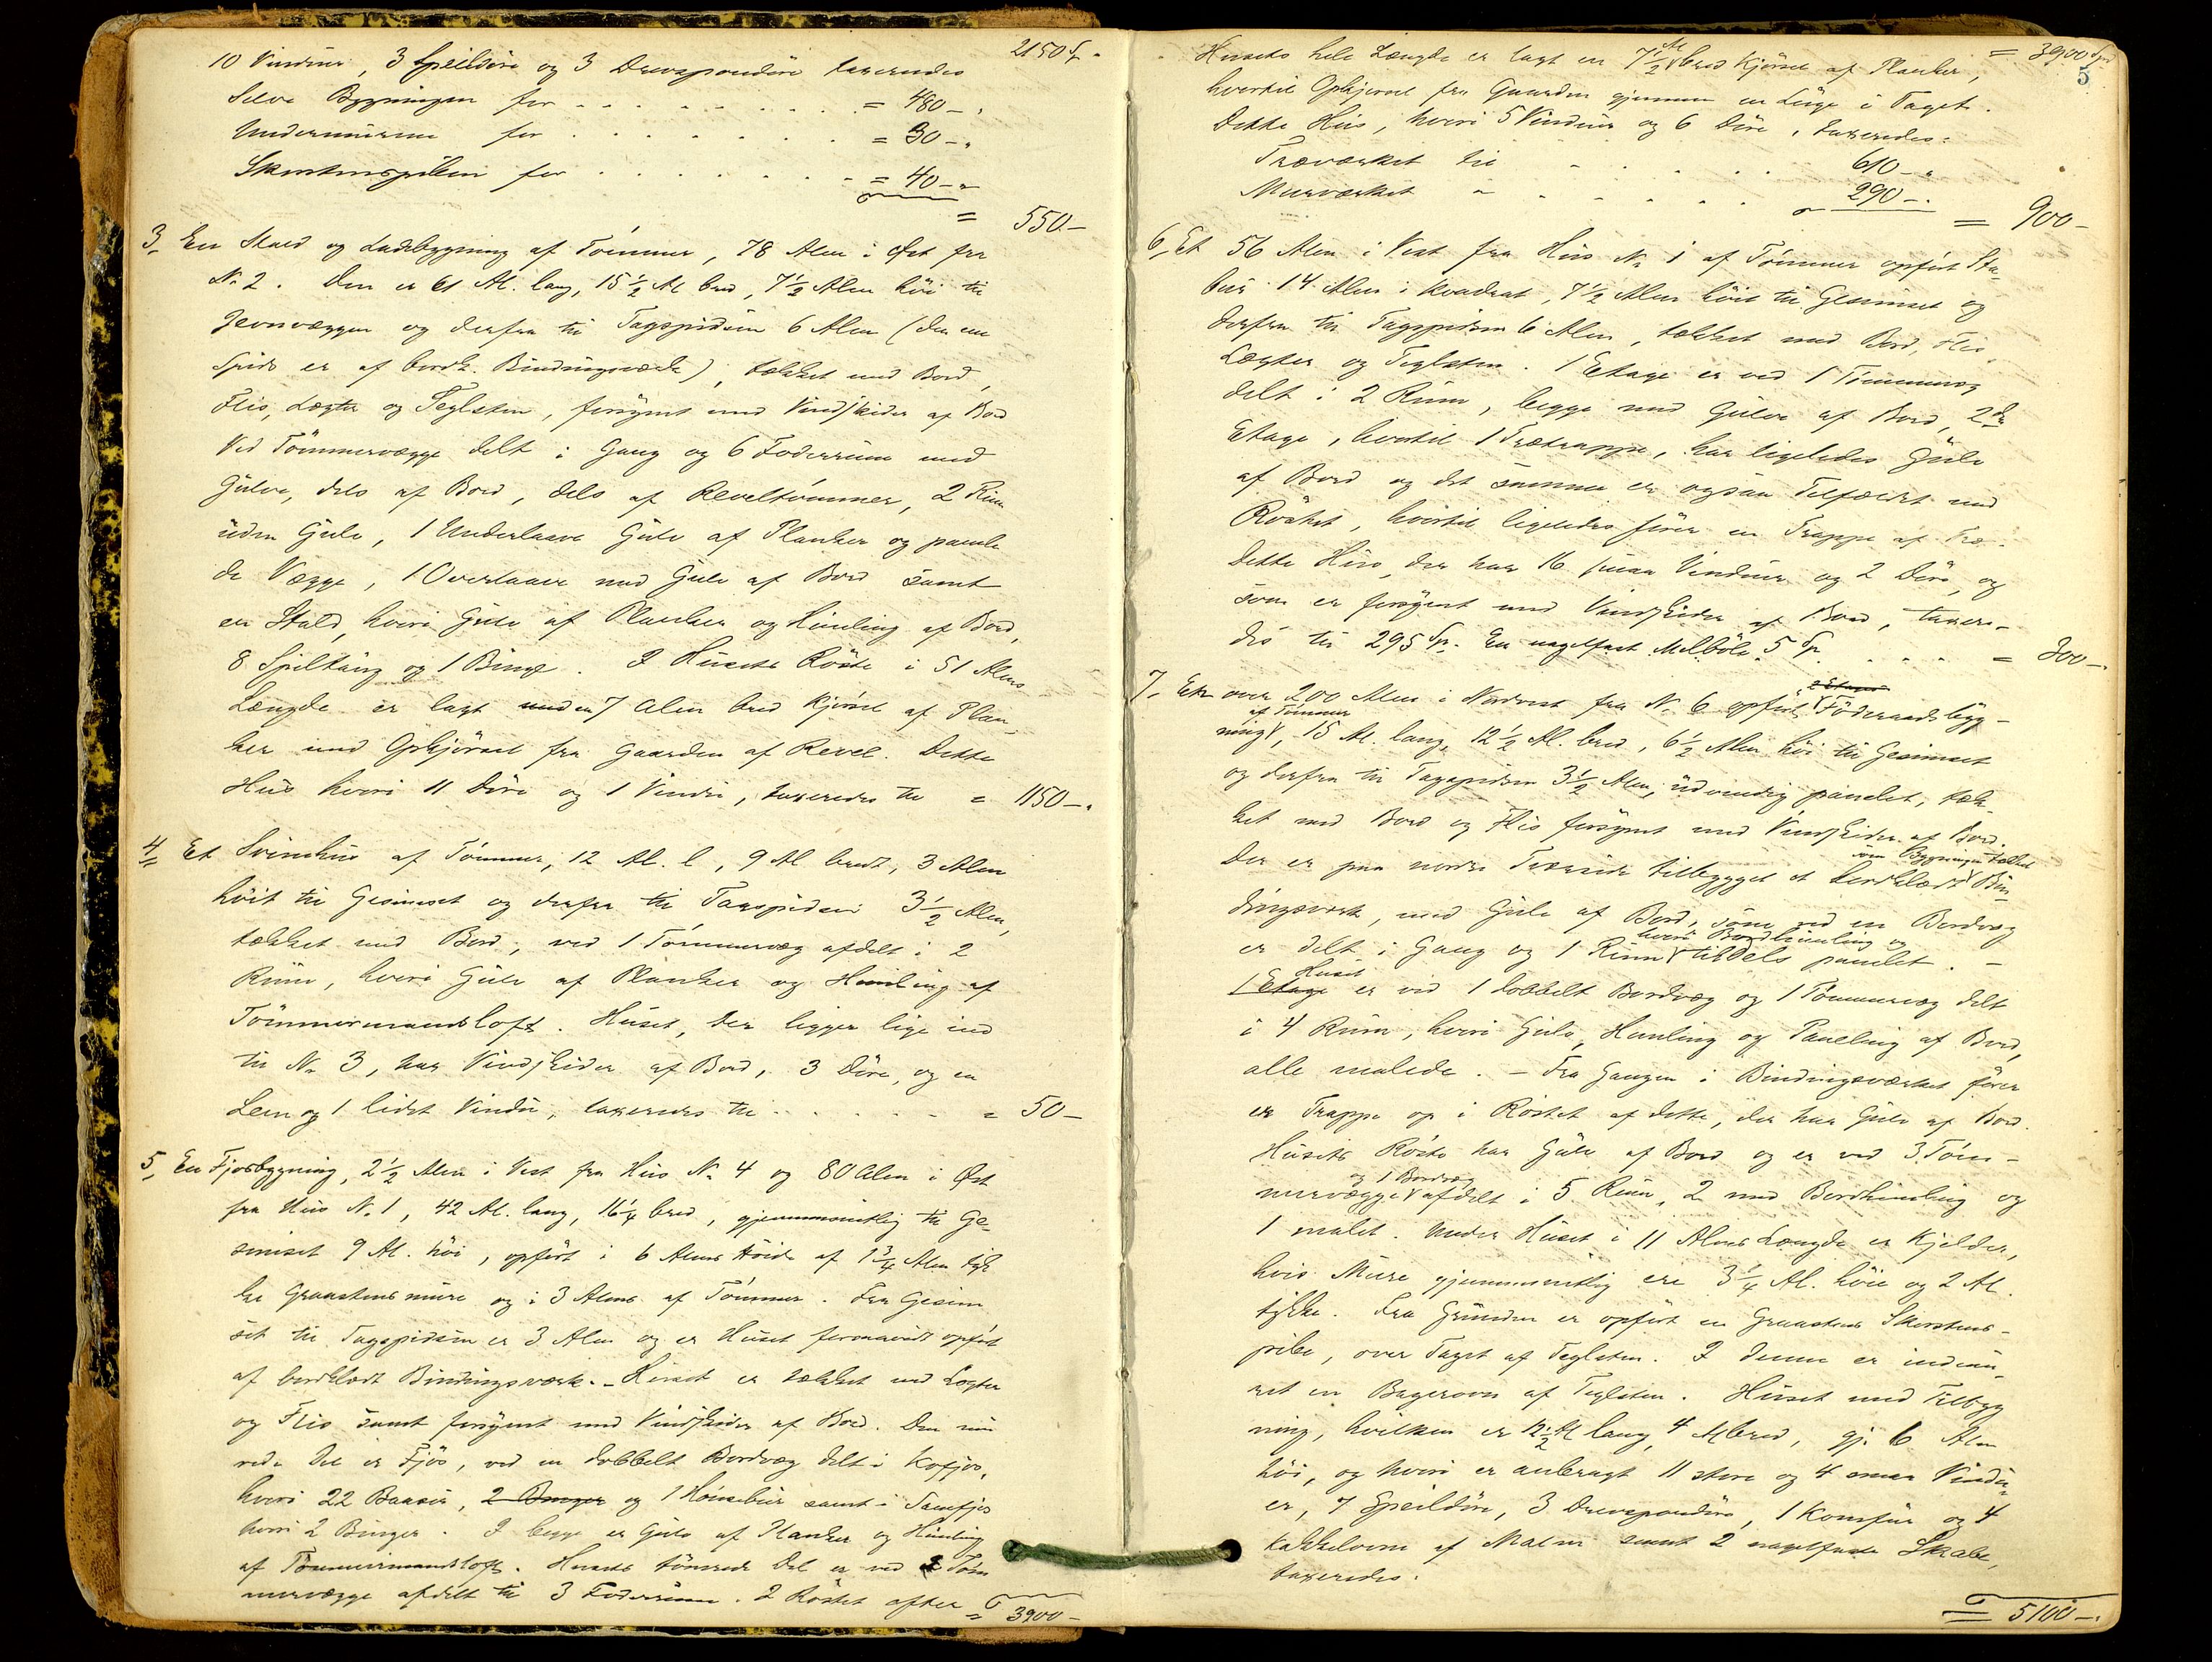 2150 Sp.
10 Vinduer, 3 Speildøre og 3 Drevspondøre taxeredes
Selve Bygningen for . . . . . . . . = 480 – "
Undermurene for . . . . . . . = 30 – "
Skorstenspiben for . . . . . . . . = 40 – "
= 550 –
3, En Stald og Ladebygning af Tömmer, 78 Alen i Øst fra
No 2. Den er 61 Al. lang, 15 1/2 Al bred, 7 1/2 Alen höi til
Jevnvæggen og derfra til Tagspidsen 6 Alen (den ene
Spids er af bordk. Bindingsværk), tækket med Bord,
Flis, Lægter og Teglsten, forsynet med Vindskider af Bord
Ved Tömmervægge delt i Gang og 6 Foderrum med
Gulve, dels af Bord, dels af Reveltömmer, 2 Rum
uden Gulv, 1 Underlaave Gulv af Planker og panele
de Vægge, 1 Overlaave med Gulv af Bord samt
en Stald, hvori Gulv af Planker og Himling af Bord,
8 Spiltaug og 1 Binge. I Husets Röste i 51 Alens
Længde er lagt en 7 Alen bred Kjörsel af Plan,
ker med Opkjörsel fra Gaarden af Revel. Dette
Hus hvori 11 Döre og 1 Vindu, taxeredes til = 1150 – "
4, Et Svinehus af Tömmer, 12 Al. l., 9 Al bredt, 3 Alen
höit til Gesimset og derfra til Tagspidsen 3 1/2 Alen,
tækket med Bord, ved 1 Tömmervæg afdelt i 2
Rum, hvori Gulv af Planker og Himling af
Tömmermandsloft. Huset, der ligger lige ind
til No 3, har Vindskider af Bord, 3 Döre, og en
Lem og 1 lidet Vindu, taxeredes til . . . . . = 50 –
5, En Fjøsbygning, 2 1/2 Alen i Vest fra Hus No 4 og 80 Alen i Øst
fra Hus No 1, 42 Al. lang, 16 1/4 bred, gjennemsnitlig til Ge-
simset 9 Al. höi, opført i 6 Alens Höide af 1 3/4 Alen tyk
ke Graastensmure og i 3 Alens af Tömmer. Fra Gesim
set til Tagspidsen er 3 Alen og er Huset foroventil opført
af bordklædt Bindingsværk. – Huset er tækket med Lægter
og Flis samt forsynet med Vindskider af Bord. Den mu
rede Del er Fjøs, ved en dobbelt Bordvæg delt i Kofjøs,
hvori 22 Baaser, 2 Binger og 1 Hönsebur samt i Sauefjøs
hvori 2 Binger. I begge er Gulv af Planker og Himling
af Tømmermandsloft. Husets tömrede Del er ved 2 Töm
mervægge afdelt til 3 Foderrum. I Röstet efter = 3900 –
= 3900 Sp.
5
Husets hele Længde er lagt en 7 1/2 Al bred Kjörsel af Planker,
hvortil Opkjørsel fra Gaarden gjennem en Luge i Taget.
Dette Hus, hvori 5 Vinduer og 6 Döre, taxeredes:
Træværket til . . . . . 610 – "
Murværket " . . . . . 290 – "
= 900 –
6, Et 56 Alen i Vest fra Hus No 1 af Tömmer opført Sta-
bur 14 Alen i Kvadrat, 7 1/2 Alen höit til Gesimset og
derfra til Tagspidsen 6 Alen, tækket med Bord, Flis,
Lægter og Teglsten. 1 Etage er ved 1 Tömmervæg
delt i 2 Rum, begge med Gulve af Bord, 2den
Etage, hvortil 1 Trætrappe, har ligeledes Gulv
af Bord og det samme er ogsaa Tilfældet med
Röstet, hvortil ligeledes fører en Trappe af Træ.
Dette Hus, der har 16 smaa Vinduer og 2 Döre, og
som er forsynet med Vindskider af Bord, taxere-
des til 295 Sp. En nagelfast Melböle 5 Sp . . . . = 300 – "
2 Etages
7, En over 200 Alen i Nordvest fra No 6 opført Föderaadsbygg-
af Tömmer
ning, 15 Al. lang, 12 1/2 Al. bred, 6 1/2 Alen höi til Gesimset
og derfra til Tagspidsen 3 1/2 Alen, udvendig panelet, tæk
ket med Bord og Flis forsynet med Vindskider af Bord.
som Bygningen tækket
Der er paa nordre Tværside tilbygget et bordklædt Bin
dingsværk, med Gulv af Bord, som ved en Bordvæg
hvori Bordhimling og
er delt i Gang og 1 Rum tildels panelet. –
Huset
1 Etage er ved 1 dobbelt Bordvæg og 1 Tömmervæg delt
i 4 Rum, hvori Gulv, Himling og Paneling af Bord,
alle malede. – Fra Gangen i Bindingsværket fører
en Trappe op i Röstet af dette, der har Gulv af Bord.
Husets Röste har Gulv af Bord og er ved 3 Töm-
og 1 Bordvæg
mervægge afdelt i 5 Rum, 2 med Bordhimling og
1 malet. Under Huset i 11 Alens Længde er Kjelder,
hvis Mure gjennemsnitlig ere 3 1/4 Al. höie og 2 Al.
tykke. Fra Grunden er opført en Graastens Skorstens-
pibe, over Taget af Teglsten. I denne er indmu
ret en Bagerovn af Teglsten. Huset med Tilbyg
ning, hvilken er 12 1/2 Al lang, 4 Al bred, gj. 6 Alen
höi, og hvori er anbragt 11 store og 4 smaa Vindu-
er, 7 Speildöre, 3 Drevspondöre, 1 Komfur og 4
Kakkelovne af Malm samt 2 nagelfaste Skabe,
taxeredes:
= 5100 – "